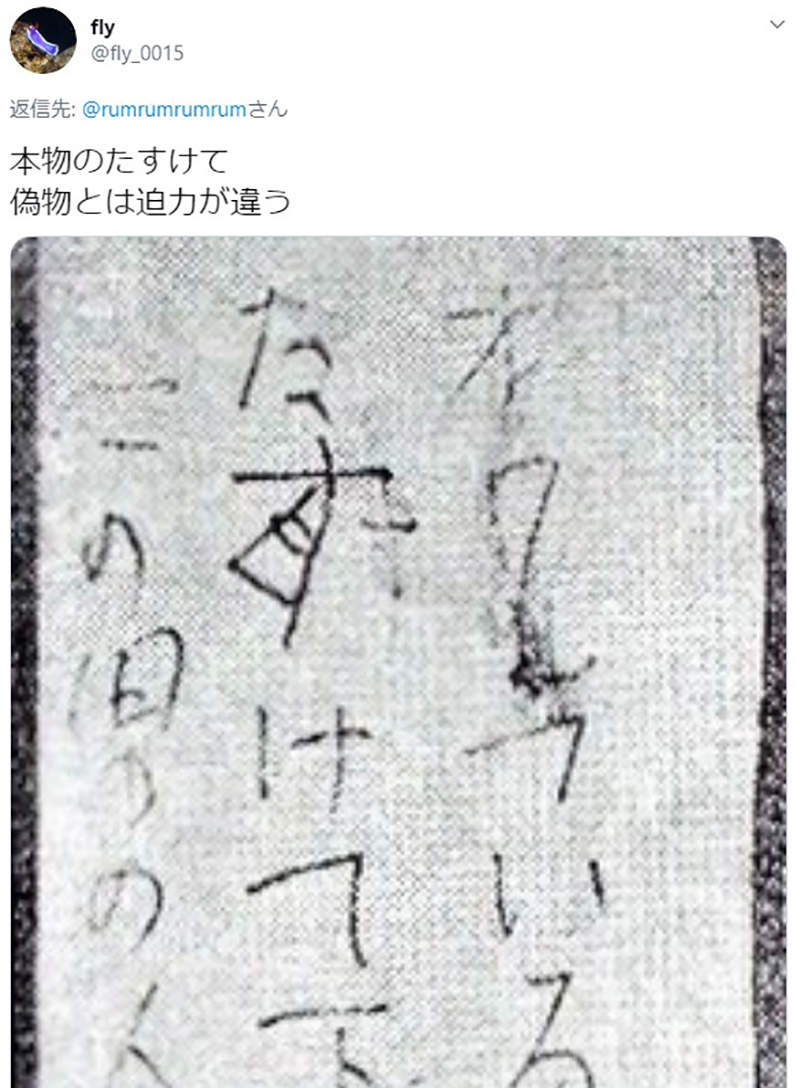 fly
@fly_0015
返信先: @rumrumrumrumさん
本物のたすけて
偽物とは迫力が違う
オワれている
たすけて下
この男の人